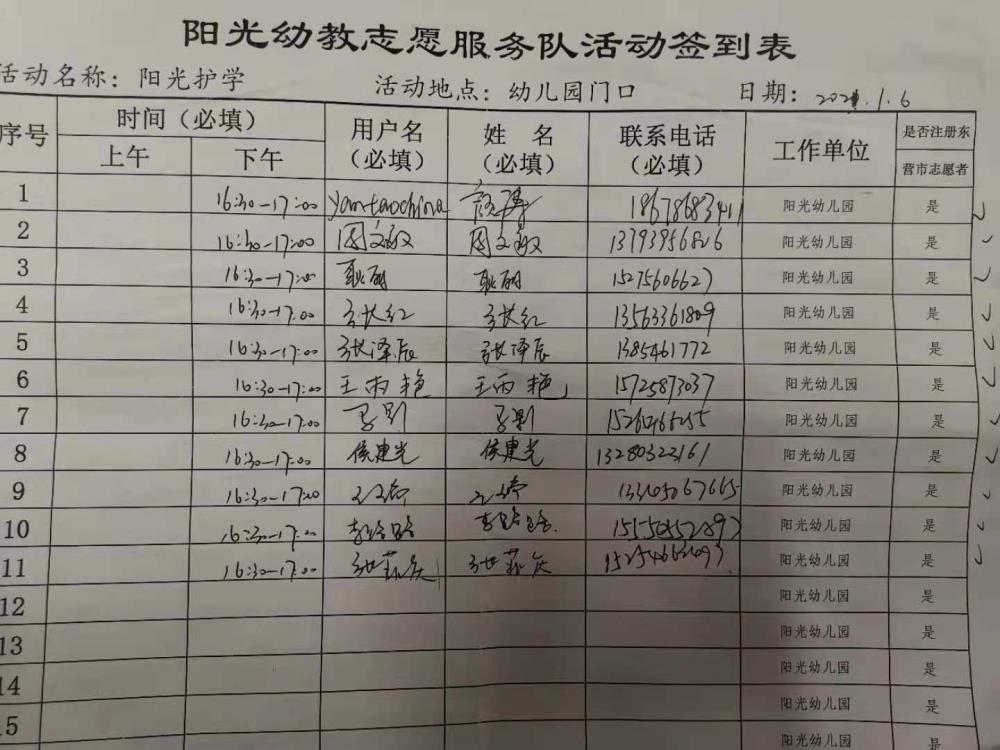 阳光幼教志愿服务队活动签到表
活动名称：阳光护学 活动地点：幼儿园门口 日期：2021.1.6
序号 时间（必填） 用户名（必填） 姓名（必填） 联系电话（必填） 工作单位 是否注册东营市志愿者
上午 下午
1 16:30-17:00 yantaochina 18678683411 阳光幼儿园 是
2 16:30-17:00 周文敏 周文敏 13793956826 阳光幼儿园 是
3 16:30-17:00 耿丽 耿丽 15275606627 阳光幼儿园 是
4 16:30-17:00 13563361809 阳光幼儿园 是
5 16:30-17:00 张泽辰 张泽辰 1385461772 阳光幼儿园 是
6 16:30-17:00 王雨艳 王雨艳 15725873037 阳光幼儿园 是
7 16:30-17:00 阳光幼儿园 是
8 16:30-17:00 侯建光 侯建光 13280322161 阳光幼儿园 是
9 16:30-17:00 阳光幼儿园 是
10 16:30-17:00 李路路 李路路 阳光幼儿园 是
11 16:30-17:00 阳光幼儿园 是
12 阳光幼儿园 是
13 阳光幼儿园 是
14 阳光幼儿园 是
15 阳光幼儿园 是